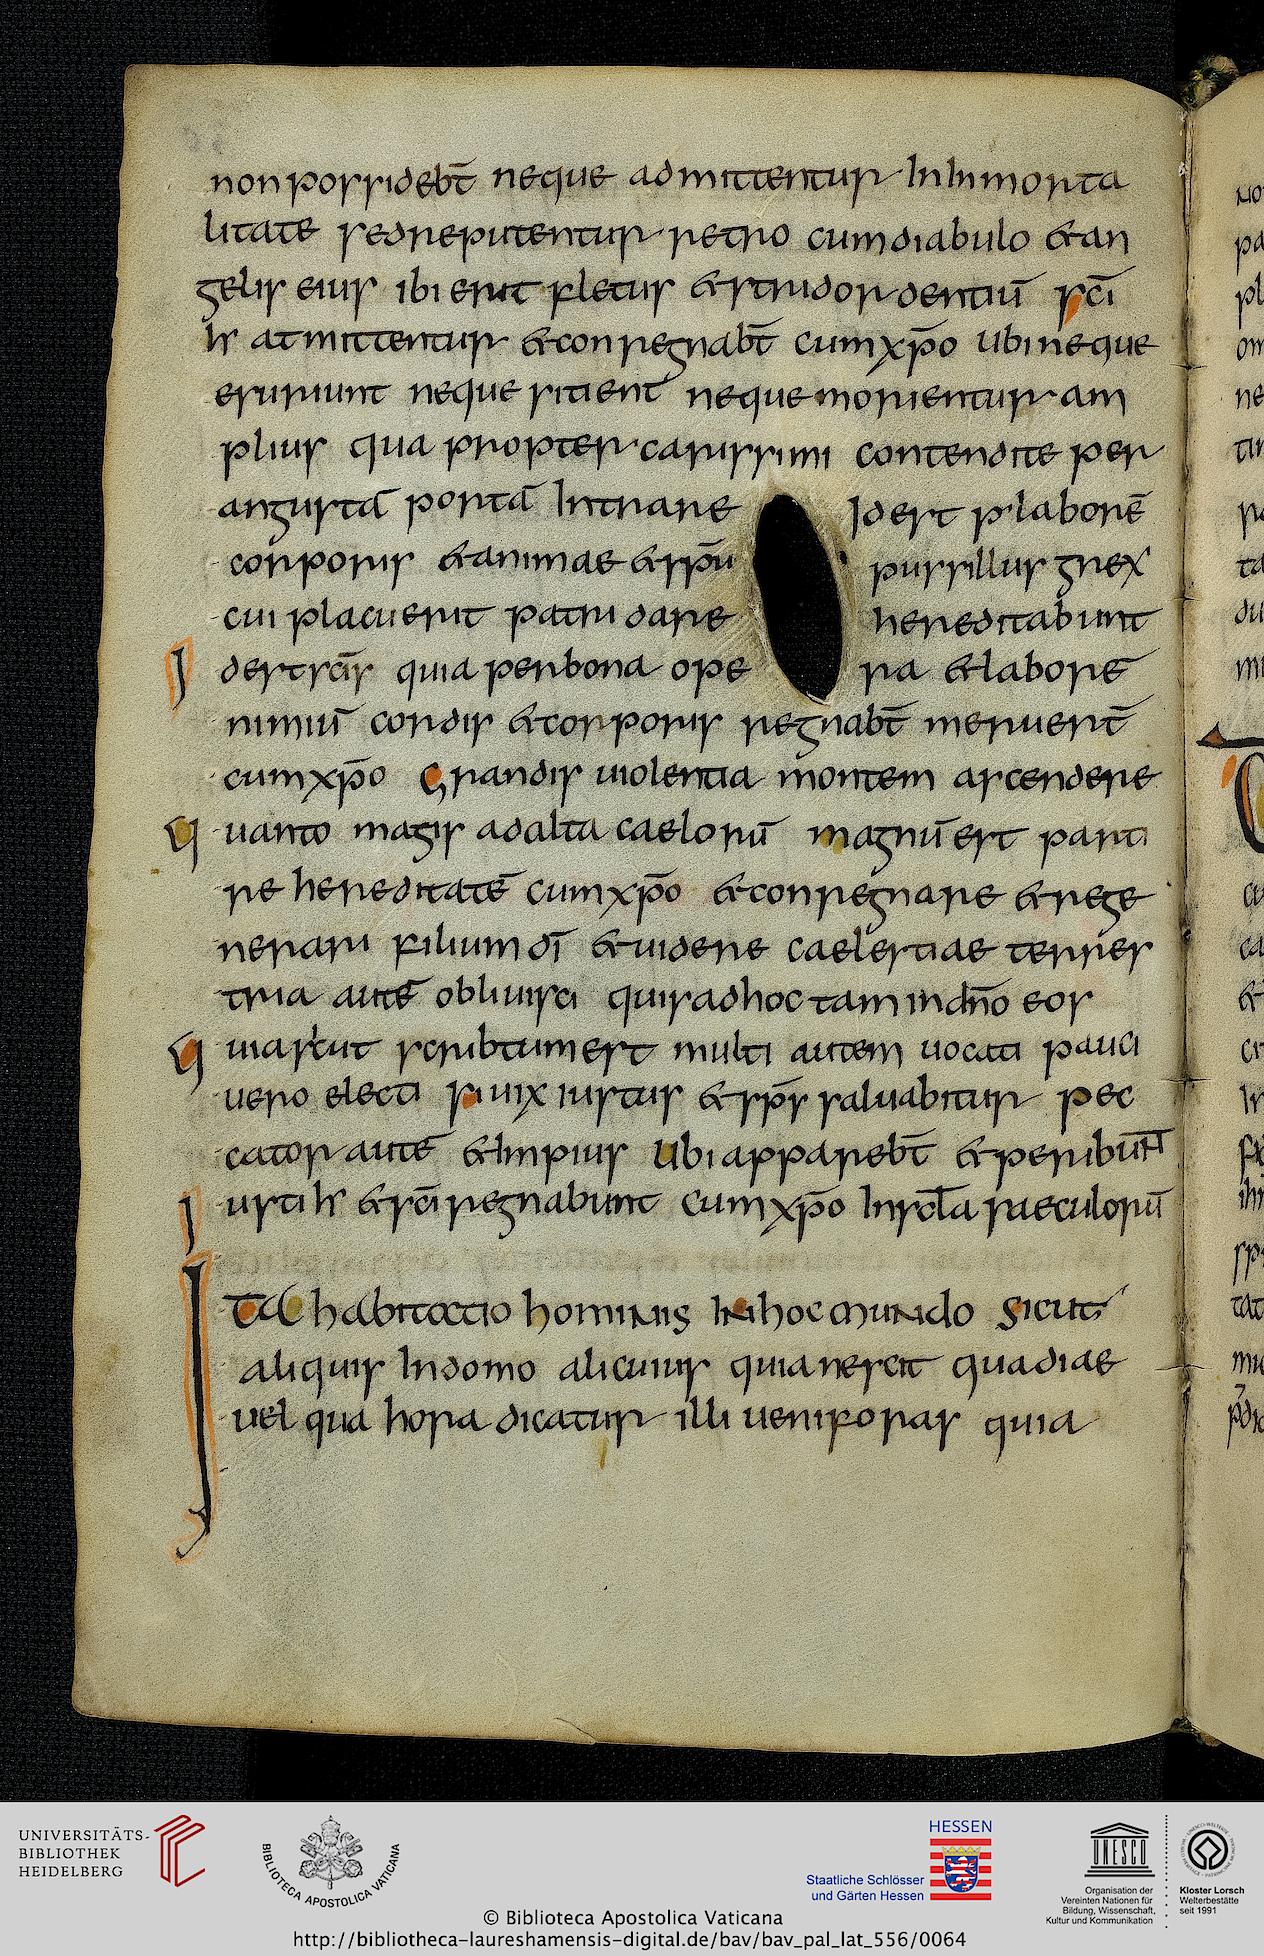 non possidebt̄ neque admittentur In Inmorta
litate sed reputentur retro cum diabulo & an
gelis eius ibi erit fletus & stridor dentiū sc̄i
Ihr atmittentur & conregnabt̄ cum xp̄o ubi neque
esuriunt neque sitient neque morientur am
plius qua propter carissimi contendite per
angustā portā Intrare Id est p laborē
corporis & animae & sp̄u pussillus grex
cui placuerit patri dare hereditabunt
I dest sc̄is quia per bona ope ra & labore
nimiū cordis & corporis regnabt̄ meruert̄
cum xp̄o Grandis uiolentia montem ascendere
Q uanto magis ad alta caelorū magnū est parti
re hereditatē cum xp̄o & conregnare & rege
nerari filium dī & uidere caelestiae terres
tria autē obliuisci quis ad hoc tam indn̄o eos
Q uia sicut scribtum est multi autem uocati pauci
uero electi si uix iustus & sp̄s saluabitur pec
cator autē & Impius Ubi apparebt̄ & peribunt̄
I usti & sc̄i regnabunt cum xp̄o In sc̄la saeculorū
I ta habitatio hominis In hoc mundo Sicut
aliquis In domo alicuius quia nescit qua diae
uel qua hora dicatur illi ueni foras quia
UNIVERSITÄTS-
BIBLIOTHEK
HEIDELBERG
BIBLIOTECA APOSTOLICA VATICANA
HESSEN
Staatliche Schlösser
und Gärten Hessen
UNESCO
Organisation der
Vereinten Nationen für
Bildung, Wissenschaft,
Kultur und Kommunikation
Kloster Lorsch
Welterbestätte
seit 1991
© Biblioteca Apostolica Vaticana
http://bibliotheca-laureshamensis-digital.de/bav/bav_pal_lat_556/0064